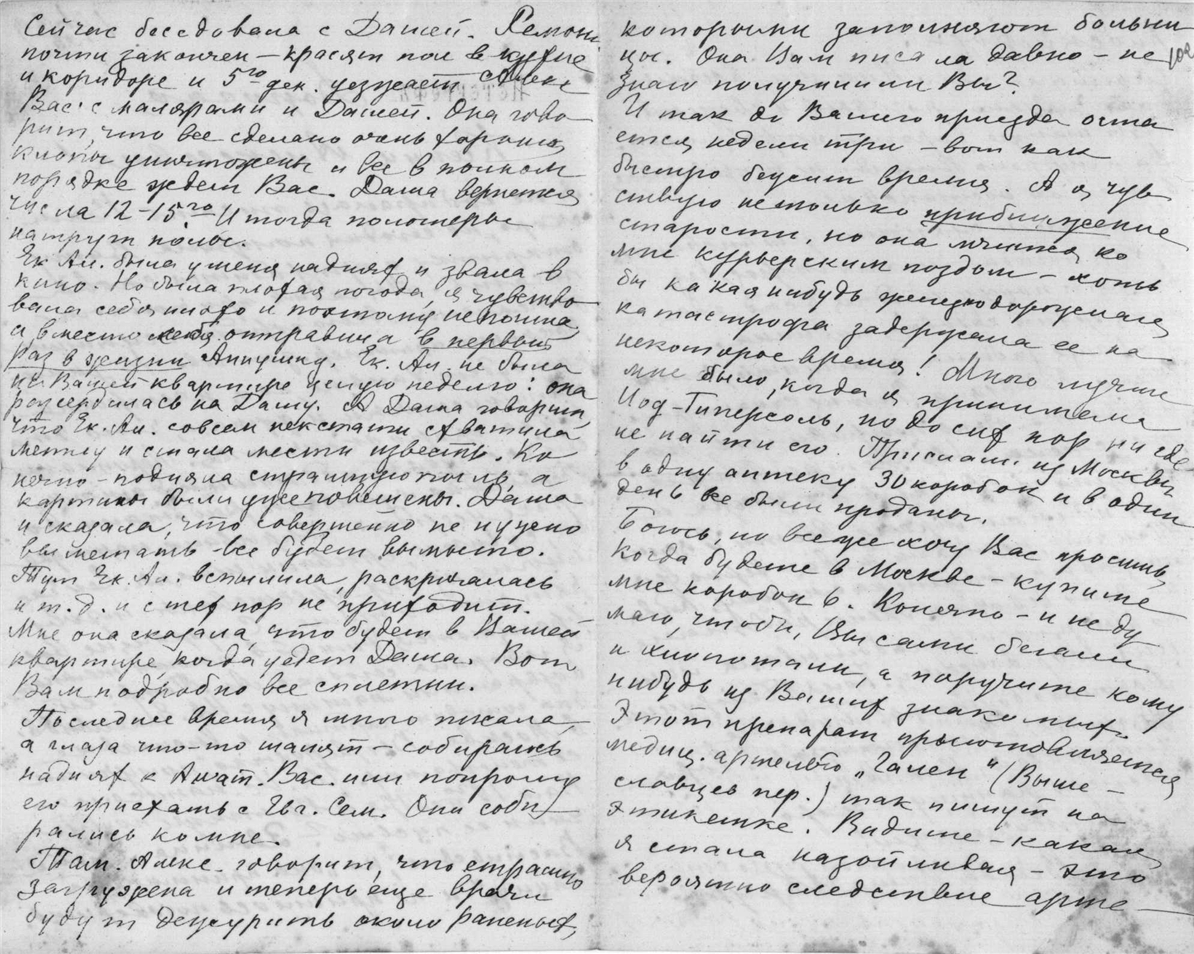 Сейчас беседовала с Дашей. Ремонт
почти закончен – красят пол в кухне
и коридоре и 5го дек. уезжает Алекс
Вас. с малярами и Дашей. Она гово
рит, что все сделано очень хорошо,
клопы уничтожены и все в полном
порядке ждет Вас. Даша вернется
числа 12–15го И тогда полотеры
натрут полы.
Ек Ал. была у меня на днях и звала в
кино. Но была плохая погода, я чувство
вала себя плохо и поэтому не пошла,
а вместо себя отправила в первый
раз в жизни Аннушку. Ек. Ал. не была
на Вашей квартире целую неделю: она
рассердилась на Дашу. А Даша говорит
что Ек. Ал. совсем некстати схватила
метлу и стала мести известь. Ко
нечно – подняла страшную пыль, а
картины были уже повешены. Даша
и сказала, что совершенно не нужно
выметать – все будет вымыто.
Тут Ек. Ал. вспылила, раскричалась
и т.д. и с тех пор не приходит.
Мне она сказала, что будет в Вашей
квартире, когда уедет Даша. Вот
Вам подробно все сплетни.
Последнее время я много писала,
а глаза что-то шалят – собираюсь
на днях к Анат. Вас. или попрошу
его приехать с Евг. Сем. Они соби
рались ко мне.
Тат. Алекс. говорит, что страшно
загружена и теперь еще врачи
будут дежурить около раненых,
которыми заполняют больни
цы. Она Вам писала давно – не
знаю получили ли Вы?
Итак до Вашего приезда оста
ется недели три – вот как
быстро бежит время. А я чув
ствую не только приближение
старости, но она мчится ко
мне курьерским поездом – хоть
бы какая нибудь железнодорожная
катастрофа задержала ее на
некоторое время! Много лучше
мне было, когда я принимала
Иод-Гиперсоль, но до сих пор нигде
не найти его. Прислали из Москвы
в одну аптеку 30 коробок и в один
день все были проданы.
Боюсь, но все же хочу Вас просить,
когда будете в Москве – купите
мне коробок 6. Конечно – и не ду
маю, чтобы Вы сами бегали
и хлопотали, а поручите кому
нибудь из Ваших знакомых.
Этот препарат приготовляется
медиц. артелью „Гален“ (Выше–
славцев пер.) так пишут на
этикетке. Видите – какая
я стала назойливая – это
вероятно следствие арте–